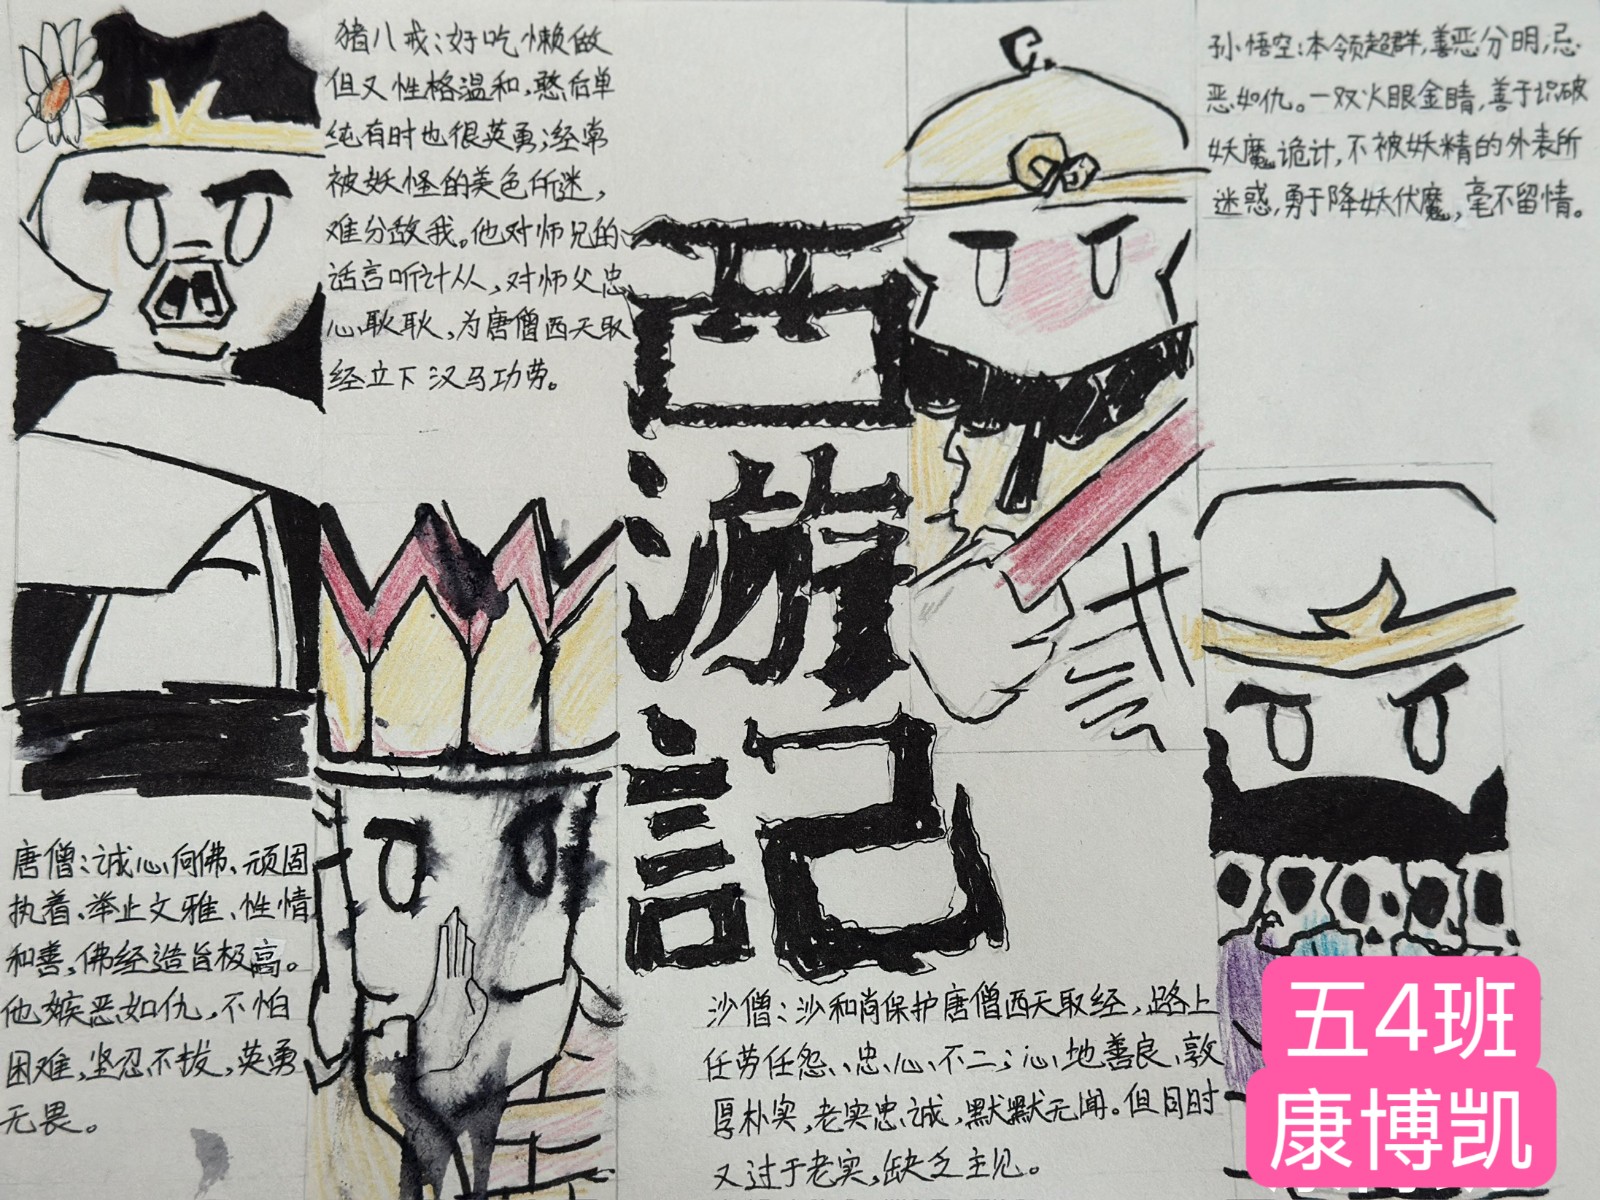 猪八戒：好吃懒做
但又性格温和，憨后单
纯有时也很英勇；经常
被妖怪的美色所迷，
难分敌我。他对师兄的
话言听计从，对师父忠
心耿耿，为唐僧西天取
经立下汉马功劳。
孙悟空：本领超群，善恶分明，忌
恶如仇。一双火眼金睛，善于识破
妖魔诡计，不被妖精的外表所
迷惑，勇于降妖伏魔，毫不留情。
西
游
記
唐僧：诚心向佛、顽固
执着、举止文雅、性情
和善，佛经造旨极高。
他嫉恶如仇，不怕
困难，坚忍不拔，英勇
无畏。
沙僧：沙和尚保护唐僧西天取经，路上
任劳任怨、忠心不二；心地善良、敦
厚朴实，老实忠诚，默默无闻。但同时
又过于老实，缺乏主见。
五4班
康博凯